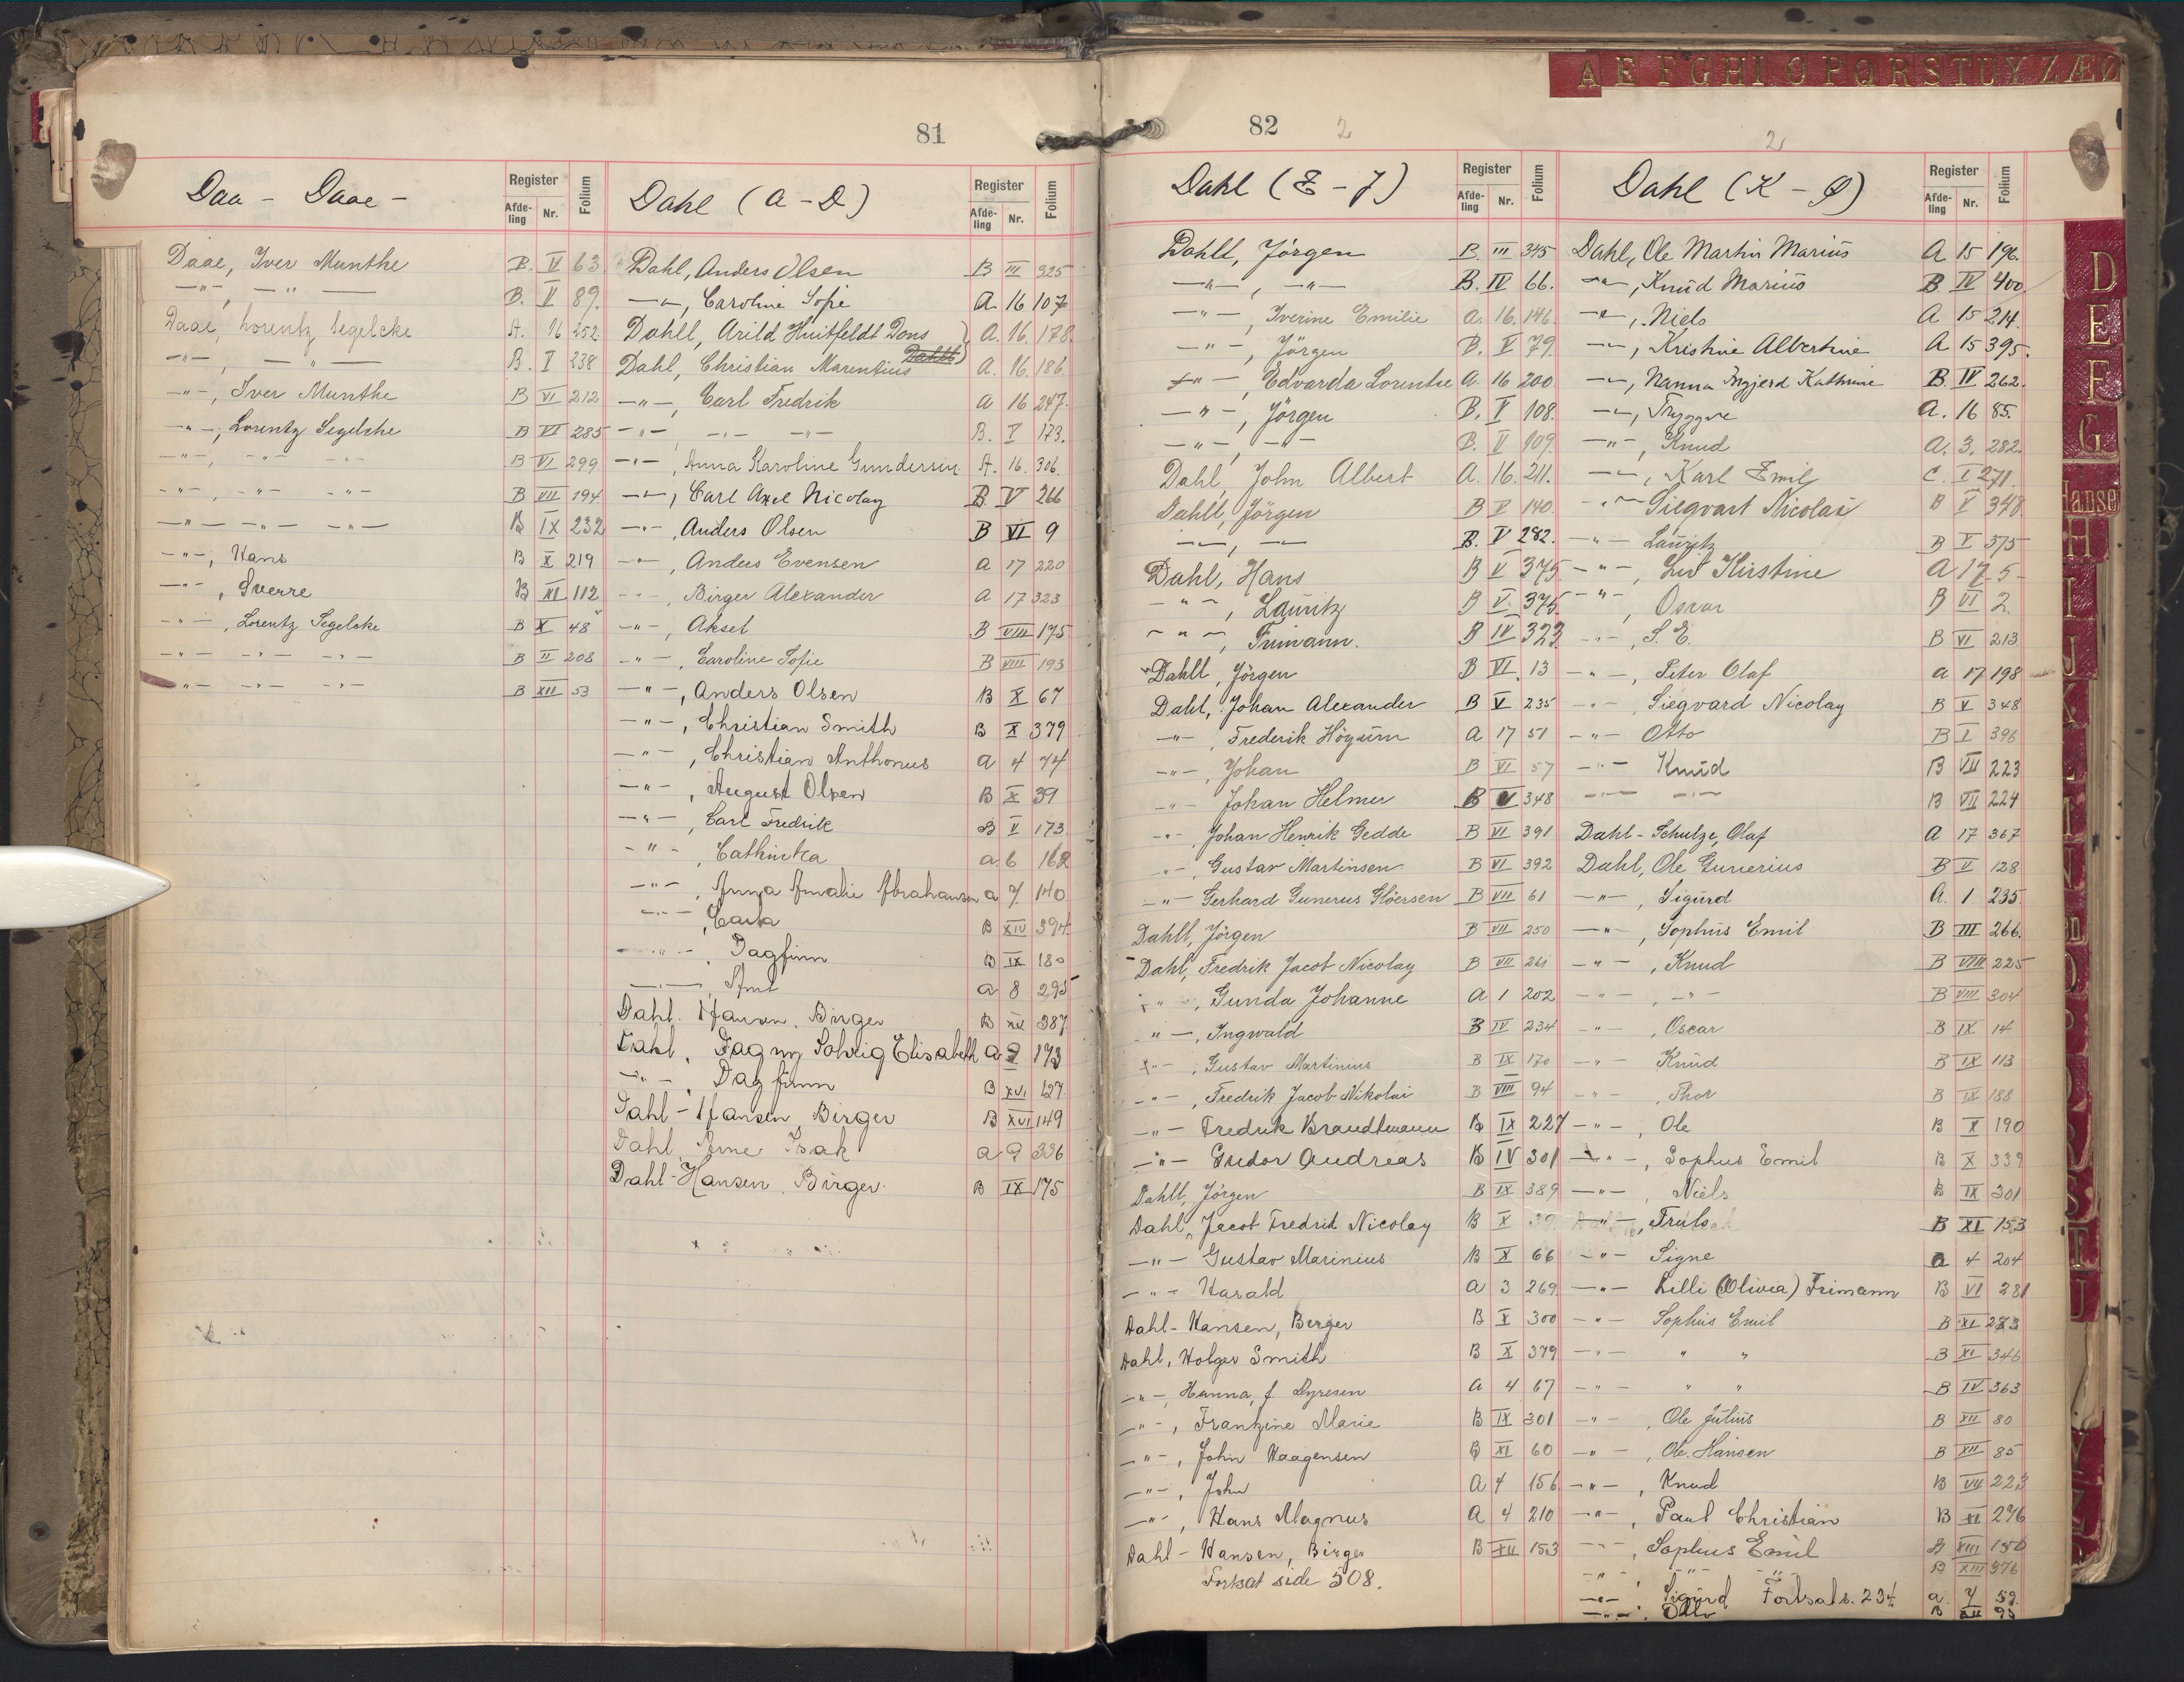 81
Daa - Daae -
Register
Afde-ling
Nr.
Folium
Daae, Iver Munthe B. V 63
—"—, —"— B. V 89.
Daae, Lorentz Segelcke A. 16 252
—"—, —"— B. V 238
—"—, Iver Munthe B VI 212
—"—, Lorentz Segelcke B VI 285
—"—, —"— —"— B VI 299
—"—, —"— —"— B VII 194
—"— —"— —"— B IX 232
—"—, Hans B X 219
—"—, Sverre B XI 112
—"—, Lorentz Segelcke B X 48
—"— —"— —"— B II 208
—"— —"— —"— B XII 53
Dahl (A-D)
Register
Afde-ling
Nr.
Folium
Dahl, Anders Olsen B III 325
—"—, Caroline Sofie A. 16 107
Dahll, Arild Huitfeldt Dons A. 16. 178
Dahl, Christian Marentius Dahll A. 16. 186
—"—, Carl Fredrik A 16 247
—"— —"— —"— B. V 173.
—"—, Anna Karoline Gundersen A. 16. 306.
—"—, Carl Axel Nicolay B. V 266
—"—, Anders Olsen B VI 9
—"—, Anders Evensen A 17 220
—"—, Birger Alexander A 17 323
—"—, Aksel B VIII 175
—"—, Caroline Sofie B VIII 193
—"—, Anders Olsen B X 67
—"—, Christian Smith B X 379
—"—, Christian Anthonus A 4 74
—"—, August Olsen B X 39
—"—, Carl Fredrik B V 173
—"—, Cathinka a 6 162
—"—, Anna Amalie Abrahamsen a 7 140
—"—, Carla B XIV 394
—"—, Dagfinn B IX 180
—"—, a 8 295
Dahl-Hansen, Birger B 387
Dahl, Dagny Solveig Elisabeth a 9 173
—"—, Dagfinn B XVI 127
Dahl-Hansen, Birger B XVI 149
Dahl, Arne Isak a 9 336
Dahl-Hansen, Birger B IX 175
82 2
Dahl (E-J)
Register
Afde-ling
Nr.
Folium
Dahll, Jörgen B. III 345
—"—, —"— B. IV 66.
—"—, Iverine Emilie A. 16. 146.
—"—, Jörgen B. V 79.
—"—, Edvarda Lorentse A. 16 200
—"—, Jörgen B. V 108.
—"—, —"— B. V 109.
Dahl, John Albert A. 16. 211.
Dahll, Jörgen B V 140
—"—, —"— B. V 282.
Dahl, Hans B V 375
—"—, Lauritz B V. 375
—"—, Frimann. B IV 323
Dahll, Jörgen B VI. 13
Dahl, Johan Alexander B V 235
—"—, Frederik Höyum A 17 51
—"—, Johan B VI 57
—"— Johan Helmer B V 348
—"— Johan Henrik Gedde B VI 391
—"—, Gustav Martinsen B VI 392
—"— Gerhard Gunerus Flöersen B VII 61
Dahll, Jörgen B VII 250
Dahl, Fredrik Jacob Nicolay B VII 261
—"—, Gunda Johanne A 1 202
—"—, Ingwald B IV 234
—"—, Gustav Martinius B IX 170
—"—, Fredrik Jacob Nikolai B VIII 94
—"— Fredrik Brandtmann B IX 227
—"— Gudor Andreas B IV 301
Dahll, Jörgen B IX 389
Dahl, Jacob Fredrik Nicolay B X 39
—"— Gustav Marinius B X 66
—"— Harald A 3 269
Dahl-Hansen, Birger B X 300
Dahl, Holger Smith B X 379
—"—, Hanna, f. Dyresen A 4 67
—"—, Frantzine Marie B IX 301
—"—, John Haagensen B XI 60
—"—, John A 4 156
—"—, Hans Magnus A 4 210
Dahl-Hansen, Birger B XII 153
Fortsat side 508.
2
Dahl (K-Ø)
Register
Afde-ling
Nr.
Folium
Dahl, Ole Martin Marius A 15 196.
—"—, Knud Marius B IV 400
—"—, Niels A 15 214.
—"—, Kristine Albertine A 15 395.
—"—, Nanna Ingjerd Kathrine B. IV 262.
—"—, Tryggve A. 16 85.
—"—, Knud A. 3. 282.
—"—, Karl Emil C. I 271.
—"— Siegvart Nicolai B V 348.
—"— Lauritz B V 375
—"—, Liv Kirstine A 17 5
—"—, Oscar B VI 2.
—"—, S. E. B VI 213
—"—, Peter Olaf A 17 198
—"—, Siegvard Nicolay B V 348
—"— Otto B I 396
—"— Knud B VII 223
—"— —"— B VII 224
Dahl-Schulze, Olaf A 17 367
Dahl, Ole Gunerius B V 128
—"—, Sigurd A. 1. 235.
—"—, Sophus Emil B III 266.
—"—, Knud B VIII 225
—"—, —"— B VIII 304
—"—, Oscar B IX 14
—"— Knud B IX 113
—"—, Thor B IX 188
—"—, Ole B X 190
—"—, Sophus Emil B X 339
—"—, Niels B IX 301
—"—, B XI 153
—"— Signe a 4 204
—"— Lilli (Olivia) Frimann B VI 281
—"— Sophus Emil B XI 283
—"— " " B XI 346
—"— " " B IV 363
—"—, Ole Julius B XII 80
—"—, Ole Hansen B XII 85
—"—, Knud B VII 223
—"—, Paul Christian B XI 296
—"—, Sophus Emil B XIII 150
—"— —"— —"— B XIII 376
—"—, Sigurd Fortsat s. 234 a. 7 59.
—"—, B 93
A E F G H I O P Q R S T U Y Z Æ Ø
D
E
F
G
Hanse
H
I
J
K
L
M
N
O
R
S
T
U